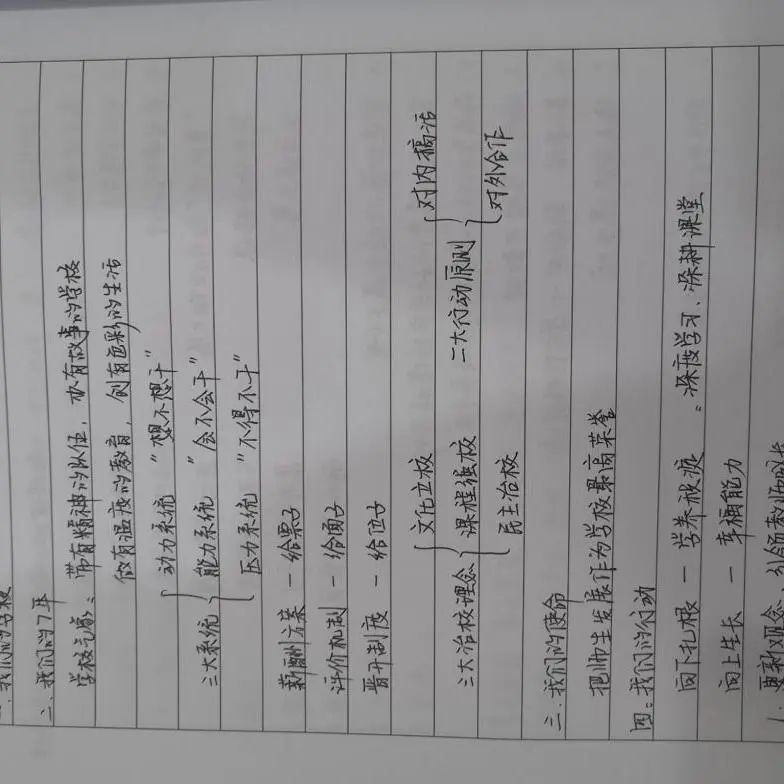 一、我们的学校
二、我们的7年
学校气象：带有精神的队伍，办有故事的学校
做有温度的教育，创有色彩的生活
三大系统
动力系统 "想不想干"
能力系统 "会不会干"
压力系统 "不得不干"
薪酬方案 — 给票子
评价机制 — 给面子
晋升制度 — 给位子
三大治校理念
文化立校
课程强校
民主治校
二大行动原则
对内搞活
对外合作
三、我们的使命
把师生发展作为学校最高荣誉
四：我们的行动
向下扎根 — 学养 ：深度学习、深耕课堂
向上生长 — 幸福能力
1. 更新观念，引领教师成长